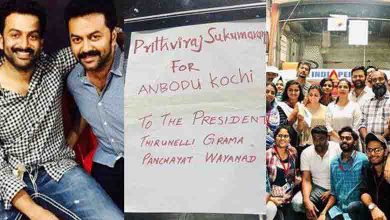 Prithviraj Sukumaran
FOR
ANBODU KOCHI
TO THE PRESIDENT
THIRUNELLI GRAMA
PANCHAYAT WAYANAD
INDIAPEL